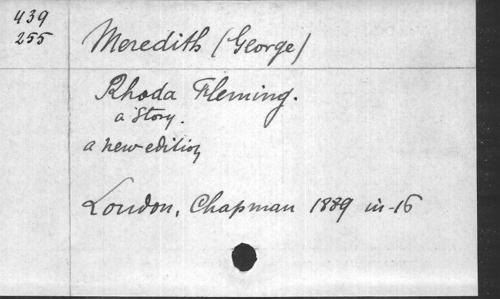 439
255
Meredith (George)
Rhoda Fleming.
a story.
a new edition
London, Chapman 1889 in-16